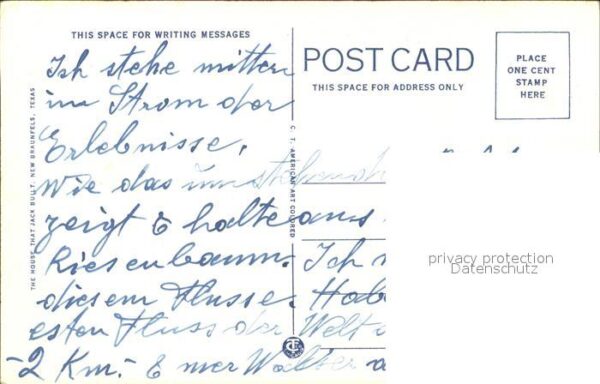 THIS SPACE FOR WRITING MESSAGES
POST CARD
THIS SPACE FOR ADDRESS ONLY
PLACE
ONE CENT
STAMP
HERE
THE HOUSE THAT JACK BUILT, NEW BRAUNFELS, TEXAS
C. T. AMERICAN ART COLORED
Ich stehe mitten
im Strom der
Erlebnisse.
Wie das
zeigt & halte
Riesenbaum. Ich
diesem Flusse.
Fluss der Welt
-2 Km.- &
privacy protection
Datenschutz